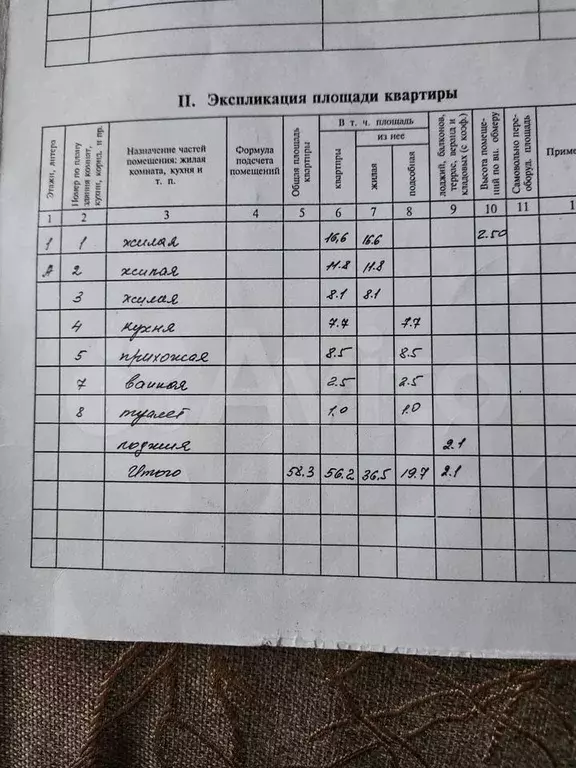 II. Экспликация площади квартиры
Этажи, литера
Номер по плану здания комнат, кухни, корид. и пр.
Назначение частей помещения: жилая комната, кухня и т. п.
Формула подсчета помещений
Общая площадь квартиры
В т. ч. площадь
квартиры
из нее
жилая
подсобная
лоджий, балконов, террас, веранд и кладовых (с коэф.)
Высота помещений по вн. обмеру
Самовольно переоборуд. площадь
Приме
1 2 3 4 5 6 7 8 9 10 11 1
1 1 жилая 16,6 16.6 2.50
А 2 жилая 11.8 11.8
3 жилая 8.1 8.1
4 кухня 7.7 7.7
5 прихожая 8.5 8.5
7 ванная 2.5 2.5
8 туалет 1.0 1.0
лоджия 2.1
Итого 58.3 56.2 36,5 19.7 2.1
Avito